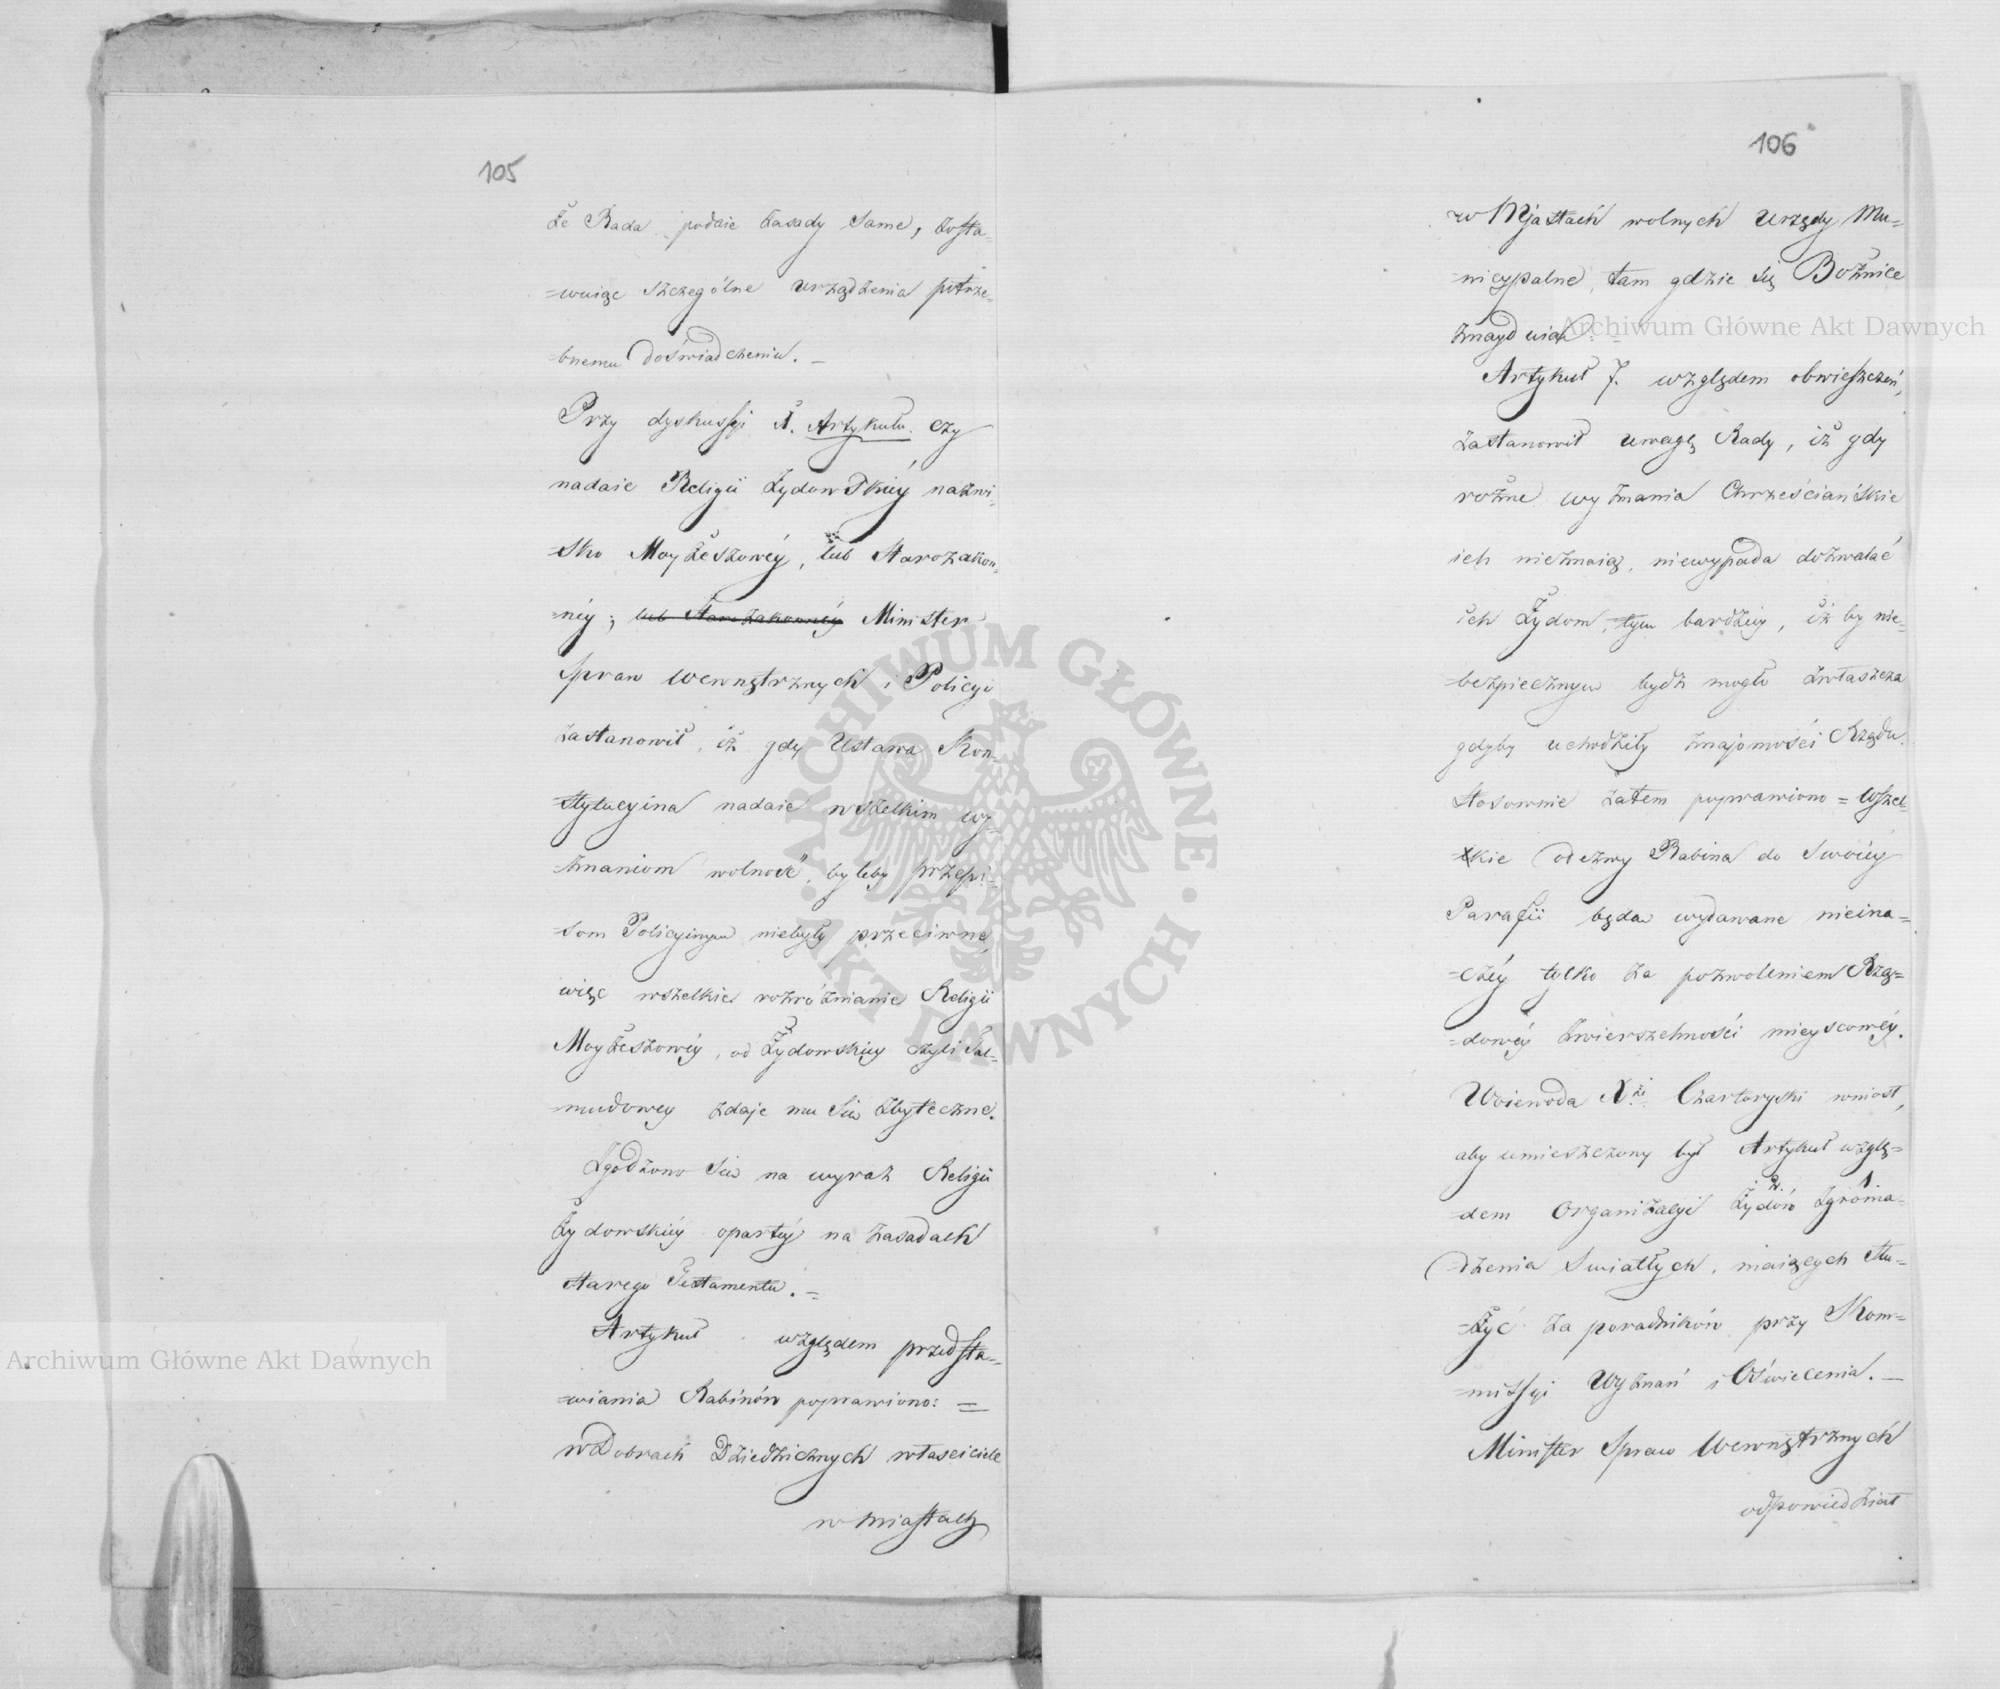 105
że Rada podaie zasady same, zosta-
=wuiąc szczególne urządzenia potrze-
=bnemu doświadczeniu. —
Przy dyskussyi 1. Artykułu. czy
nadaie Religii Żydowskiéy nazwi-
=sko Moyżeszowéy, lub Starozakon-
=néy; lub Starozakonnéy Minister
Spraw Wewnętrznych i Policyi
zastanowił, iż gdy Ustawa Kon-
=stytucyina nadaie wszelkim wy-
=znaniom wolność, byleby przepi-
=som Policyinym niebyły przeciwne,
więc wszelkie rozróżnianie Religii
Moyżeszowéy, od Żydowskiéy czyli Tal-
=mudowey zdaje mu się zbyteczne.
Zgodzono się na wyraz Religii
Żydowskiéy opartéy na zasadach
starego Testamentu. =
Artykuł względem przedsta-
=wiania Rabinów poprawiono: =
w Dobrach Dziedzicznych właściciele
w miastach
106
w Mjastach wolnych Urzędy Mu-
=nicypalne, tam gdzie się Bożnice
znayduią. =
Artykuł 7. względem obwieszczeń,
zastanowił uwagę Rady, iż gdy
rożne wyznania Chrześciańskie
ich nieznaią, niewypada dozwalać
ich Żydom, tym bardziéy, iż by nie-
=bezpiecznym bydź mogło zwłaszcza
gdyby uchodziły znajomości Rządu.
Stosownie zatem poprawiono = Wszel-
=kie odezwy Rabina do swoiéy
Parafii będą wydawane nieina-
=czéy tylko za pozwoleniem Rzą-
=dowéy zwierzchności mieyscowéy.
Woiewoda Xże Czartoryski wniosł,
aby umieszczony był Artykuł wzglę-
=dem Organizacyi Żydów 2. Zgroma- 1.
=dzenia Swiatłych, maiących słu-
=żyć za poradników przy Kom-
=missyi Wyznań i Oświecenia. —
Minister Spraw Wewnętrznych
odpowiedział
Archiwum Główne Akt Dawnych
Archiwum Główne Akt Dawnych
ARCHIWUM GŁÓWNE · AKT DAWNYCH ·